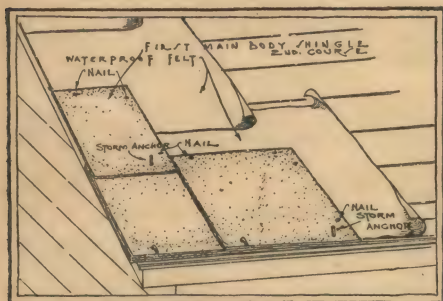 FIRST MAIN BODY SHINGLE
2ND. COURSE
WATERPROOF FELT
NAIL
STORM ANCHOR
NAIL
NAIL
STORM
ANCHOR